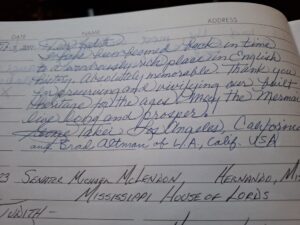 DATE NAME ADDRESS
I have been beamed back in time
to a wondrously rich place in English
history. Absolutely memorable. Thank you
in preserving and vivifying our built
heritage for the ages. May the Mermaid
live long and prosper!
Takei Los Angeles, California
and Brad Altman of L/A, Calif. USA
23 SENATOR MICHAEL MCLENDON HERNANDO, MIS
MISSISSIPPI HOUSE OF LORDS
JUDITH -